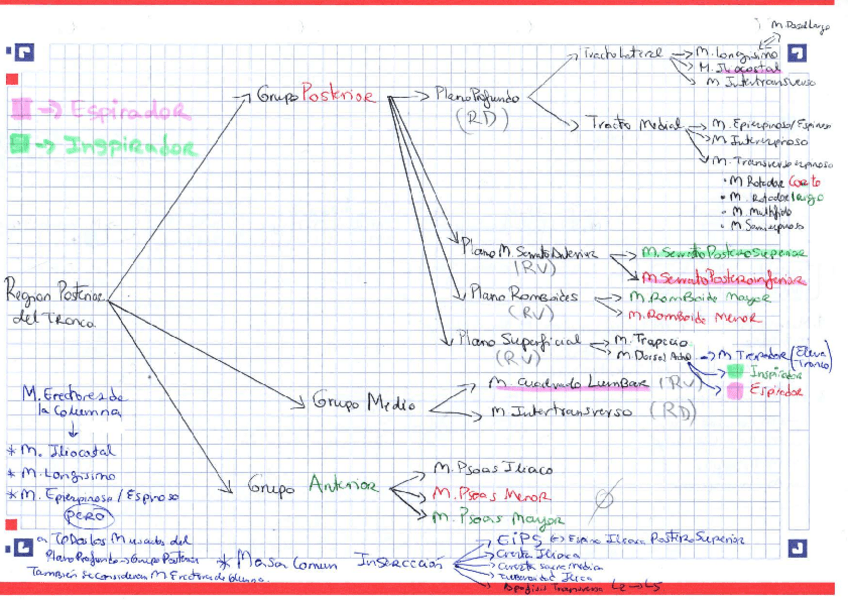 M. Dorsal largo
Tracto Lateral → M. Longisimo
M. Iliocostal
M Intertransverso
Grupo Posterior → Plano Profundo
(RD)
→ Espirador
→ Inspirador
Tracto Medial → M. Epiespinoso/Espinoso
M Interespinoso
M. Transverso espinoso
• M Rotador Corto
• M. rotador largo
• M. Multifido
• M. Semiespinoso
Plano M. Serrato Anterior → M. Serrato Postero Superior
(RV)
M. Serrato Posteroinferior
Region Posterior
del Tronco
Plano Romboides → M. Romboide Mayor
(RV)
M. Romboide Menor
Plano Superficial → M. Trapecio
(RV)
M. Dorsal Ancho → M Trepador (Eleva
Tronco)
Inspirador
Espirador
M. Erectores de
la Columna
Grupo Medio
M. Cuadrado Lumbar (RV)
M Intertransverso (RD)
* M. Iliocostal
* M. Longisimo
* M. Epiespinoso / Espinoso
PERO
Grupo Anterior
M. Psoas Iliaco
M. Psoas Menor
M. Psoas Mayor
a TODOS los Musculos del
Plano Profundo → Grupo Posterior
También se consideran M Erectores de columna.
* Masa Comun Inserccion
EIPS ↔ Espina Iliaca Postero Superior
Cresta Iliaca
Cresta sacra Media
Tuberosidad Iliaca
Apofisis Transversa L2 → L5